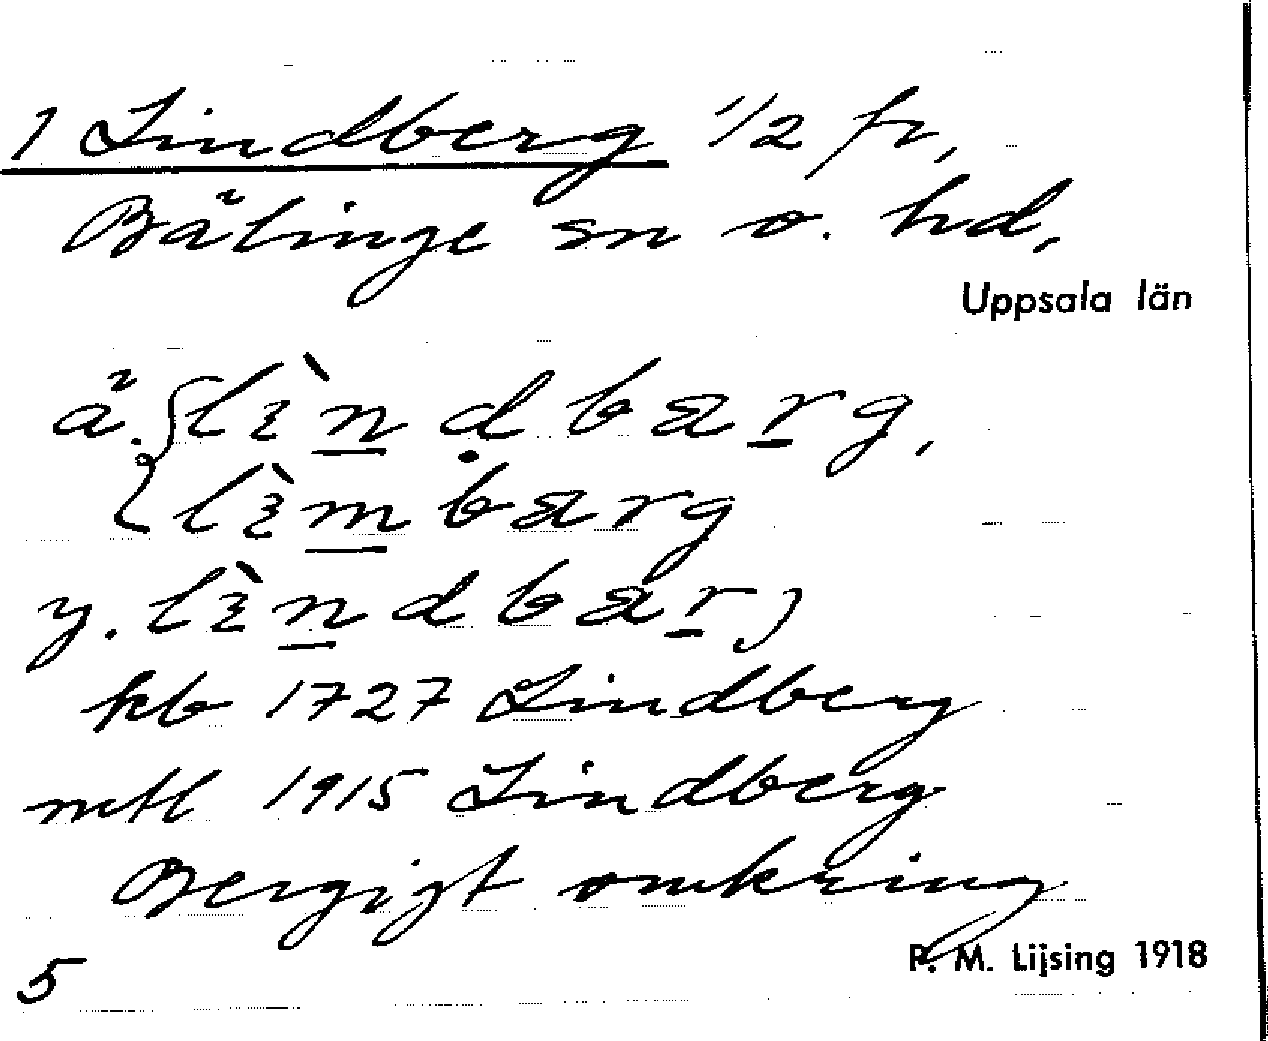 1 Lindberg 1/2 fr,
Bälinge sn o. hd,
Uppsala län
ä. { lìndbarg,
{ lìmbarg
y. lìndbarj
kb 1727 Lindberg
mtl 1915 Lindberg
Bergigt omkring
P. M. Lijsing 1918
5